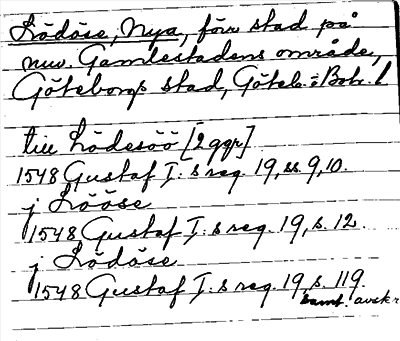 Lödöse, Nya, förr stad på
nuv. Gamlestadens område,
Göteborgs stad, Göteb. o. Boh. l
till Lödesöö [2 ggr]
1548 Gustaf I:s reg. 19, ss. 9, 10.
j Lööse
1548 Gustaf I:s reg. 19, s. 12.
j Lödöse
1548 Gustaf I:s reg. 19, s. 119.
samt. avskr